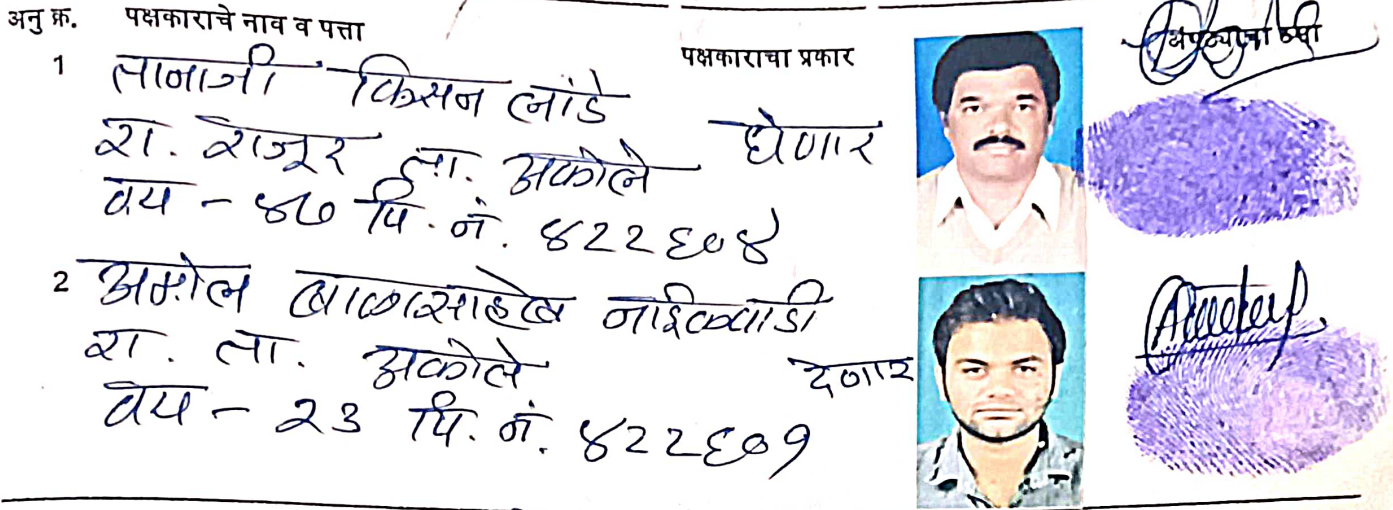 अनु क्र. पक्षकाराचे नाव व पत्ता पक्षकाराचा प्रकार अंगठ्याचा ठसा
1 तानाजी किसन लांडे
रा. राजूर ता. अकोले घेणार
वय - ४७ पि. नं. ४२२६०४
2 अमोल बाळासाहेब नाईकवाडी
रा. ता. अकोले देणार
वय - २३ पि. नं. ४२२६०१